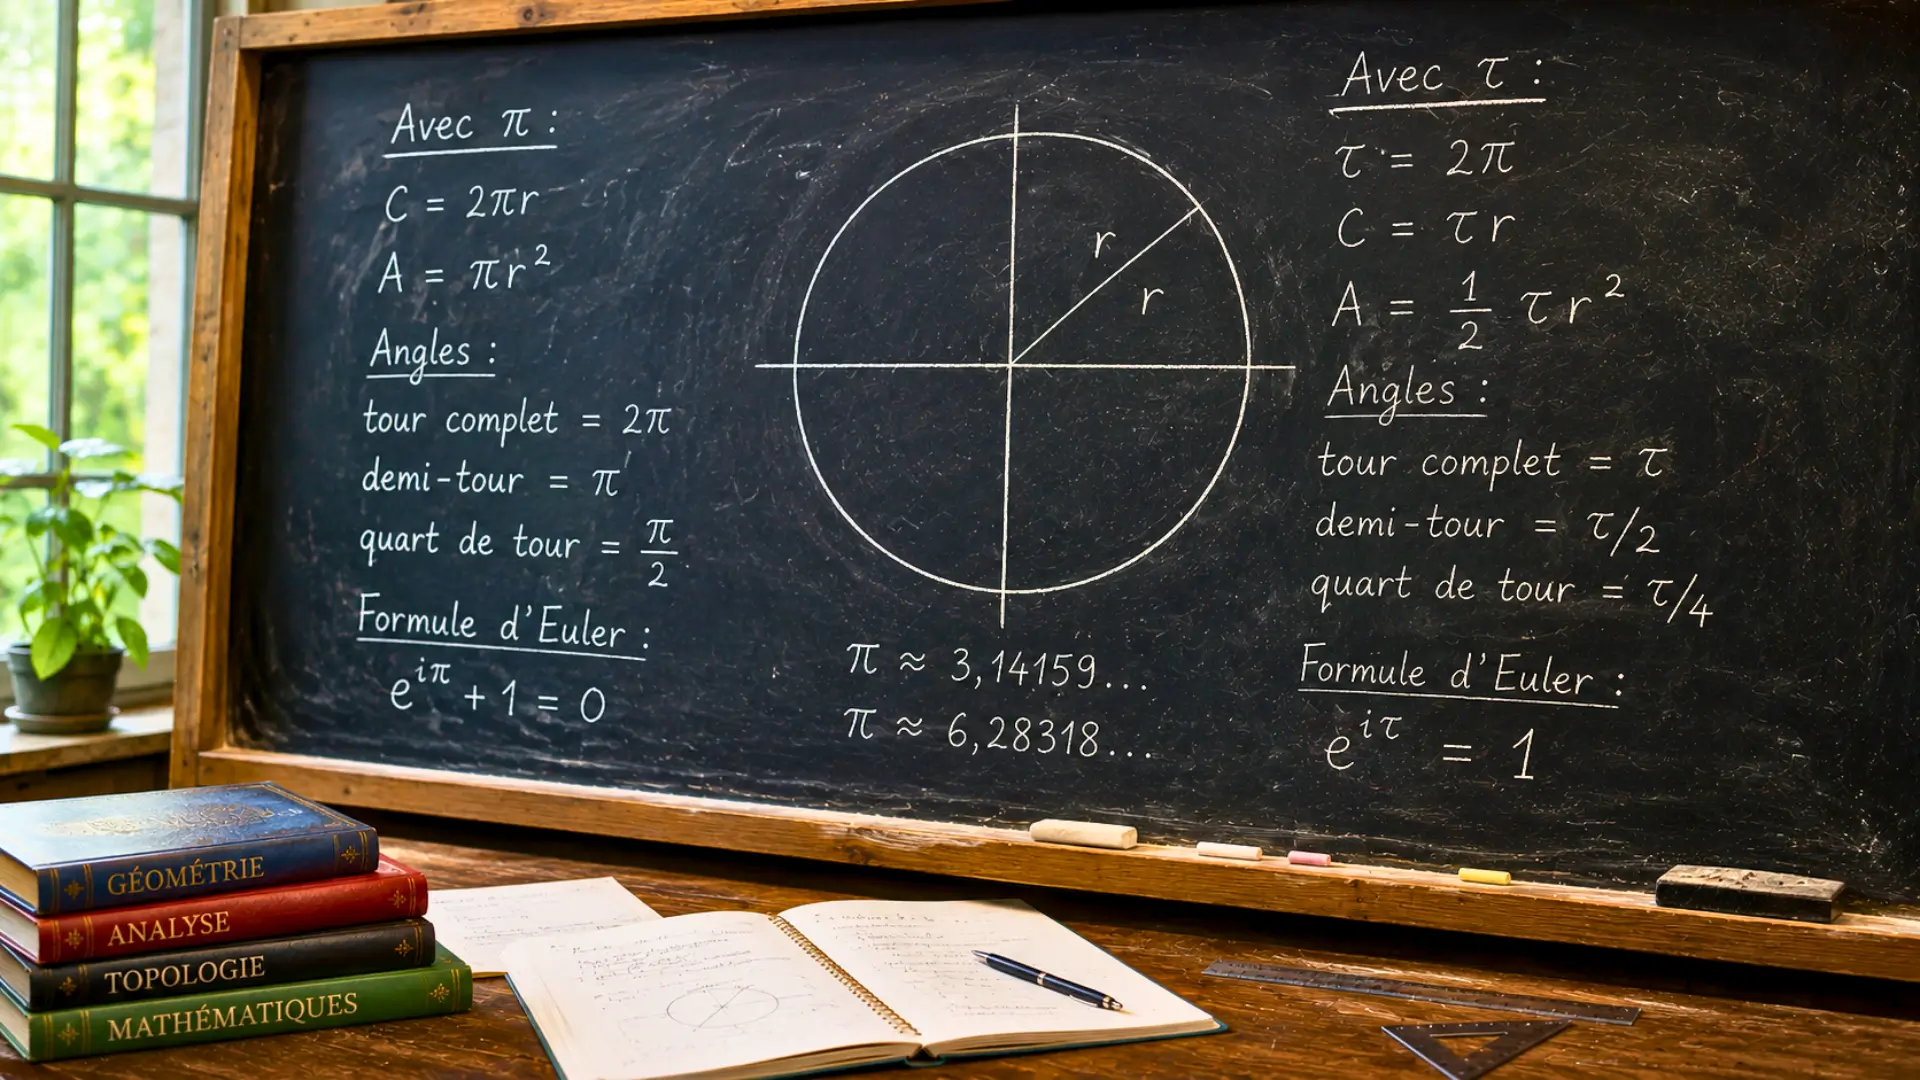 Avec π :
C = 2πr
A = πr²
Angles :
tour complet = 2π
demi-tour = π
quart de tour = π/2
Formule d'Euler :
e^{iπ} + 1 = 0
r
r
π ≈ 3,14159...
π ≈ 6,28318...
Avec τ :
τ = 2π
C = τr
A = 1/2 τr²
Angles :
tour complet = τ
demi-tour = τ/2
quart de tour = τ/4
Formule d'Euler :
e^{iτ} = 1
GÉOMÉTRIE
ANALYSE
TOPOLOGIE
MATHÉMATIQUES